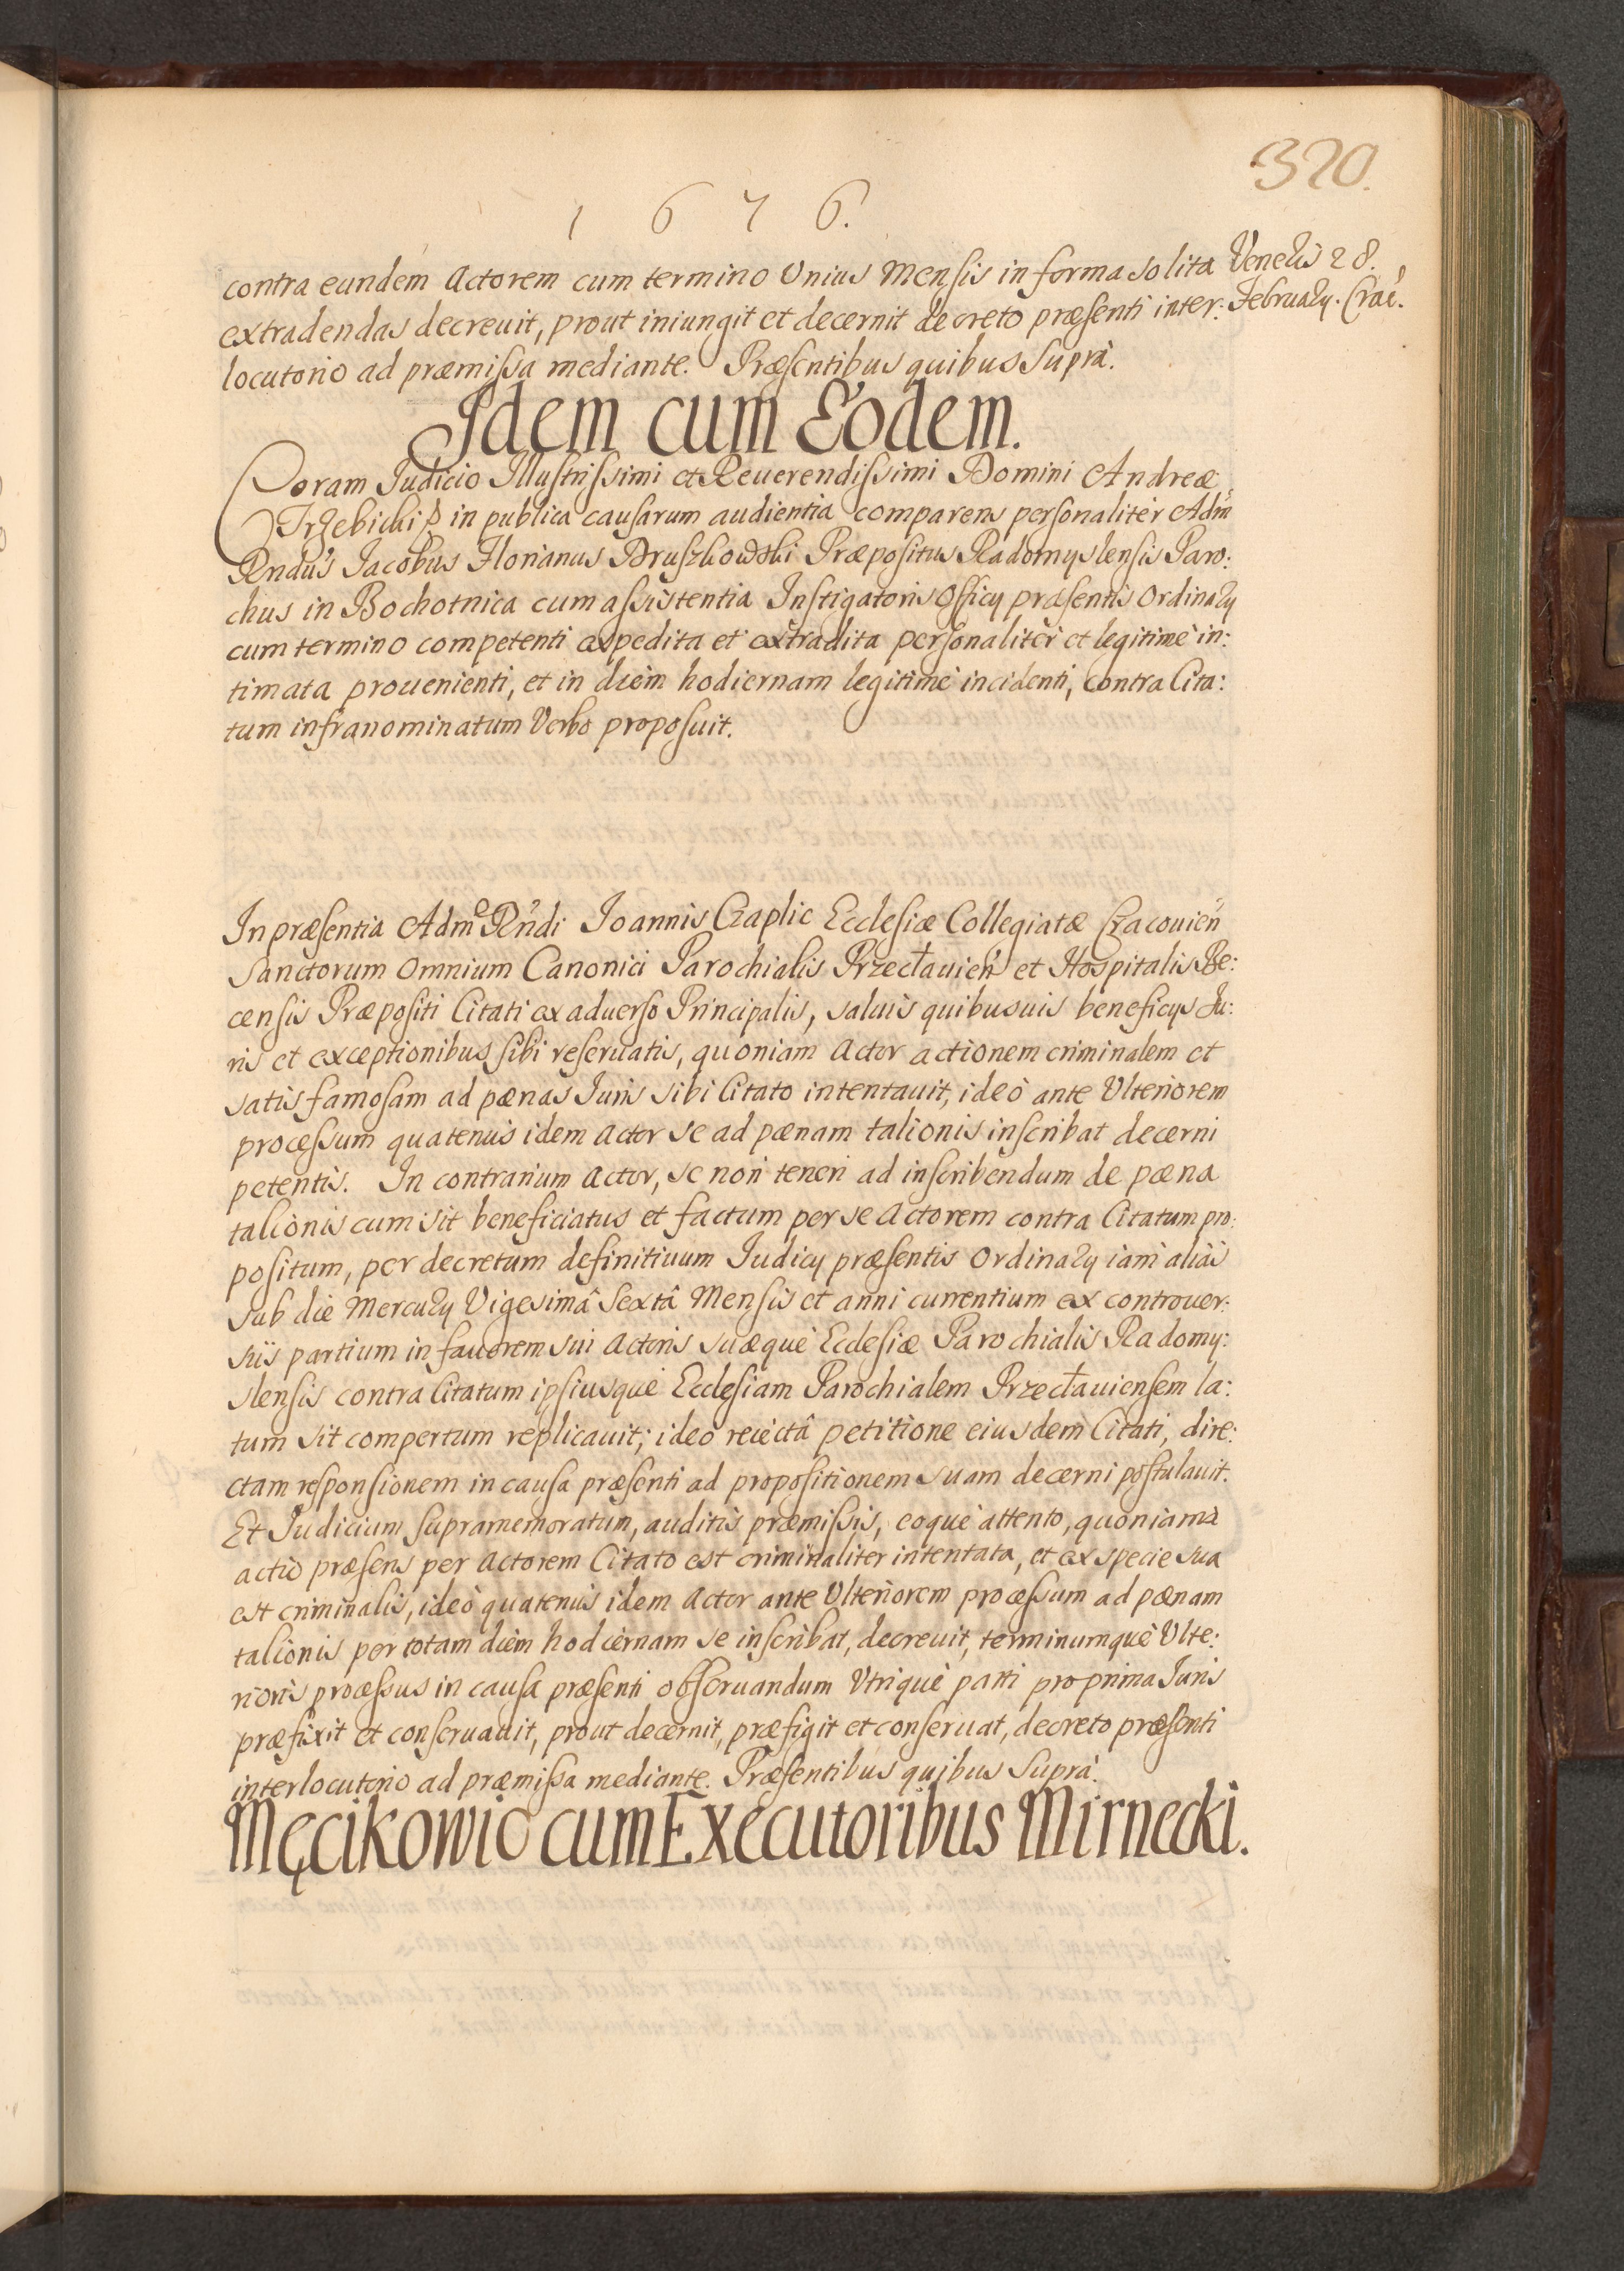 320.
1 6 7 6.
contra eundem Actorem cum termino Unius Mensis in forma solita
Veneris 28.
extradendas decreuit, prout iniungit et decernit decreto præsenti inter:
February. Crac.
locutorio ad præmissa mediante. Præsentibus quibus Suprà.
Idem cum Eodem.
Coram Judicio Illustrissimi et Reuerendissimi Domini Andreæ
Trzebicki in publica causarum audientia comparens personaliter Adm
Rndus Jacobus Florianus Druszkowski Præpositus Radomyslensis Paro:
chus in Bochotnica cum assistentia Instigatoris Officy præsentis Ordinary
cum termino competenti expedita et extradita personaliter et legitimè in:
timata prouenienti, et in diem hodiernam legitimè incidenti, contra Cita:
tum infranominatum Verbo proposuit.
In præsentia Adm Rndi Joannis Czaplic Ecclesiæ Collegiatæ Cracouien
Sanctorum Omnium Canonici Parochialis Przecłauien et Hospitalis Be:
censis Præpositi Citati ex aduerso Principalis, saluis quibusuis beneficys Ju:
ris et exceptionibus sibi reseruatis, quoniam Actor actionem criminalem et
satis famosam ad pænas Juris sibi Citato intentauit, ideò ante Ulteriorem
processum quatenus idem Actor se ad pænam talionis inscribat decerni
petentis. In contrarium Actor, se non teneri ad inscribendum de pæna
talionis cum sit beneficiatus et factum per se Actorem contra Citatum pro:
positum, per decretum definitiuum Judicy præsentis Ordinary iam aliàs
sub die Mercury Vigesimâ Sextâ Mensis et anni currentium ex controuer:
siis partium in fauorem sui Actoris suæquè Ecclesiæ Parochialis Radomy:
slensis contra Citatum ipsiusquè Ecclesiam Parochialem Przecłauiensem la:
tum sit compertum replicauit; ideò reiectâ petitione eiusdem Citati, dire:
ctam responsionem in causa præsenti ad propositionem suam decerni postulauit.
Et Judicium supramemoratum, auditis præmissis, eoquè attento, quoniam
actio præsens per Actorem Citato est criminaliter intentata, et ex specie sua
est criminalis, ideò quatenus idem Actor ante Ulteriorem processum ad pænam
talionis per totam diem hodiernam se inscribat, decreuit, terminumquè Ulte:
rioris processus in causa præsenti obseruandum Utriquè parti pro prima Juris
præfixit et conseruauit, prout decernit, præfigit et conseruat, decreto præsenti
interlocutorio ad præmissa mediante. Præsentibus quibus Suprà.
Męcikowic cum Executoribus Mirnecki.